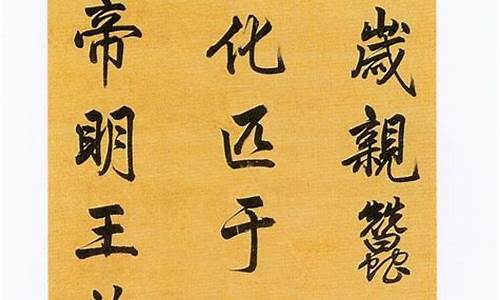 歲親蠶
化匹于
帝明王